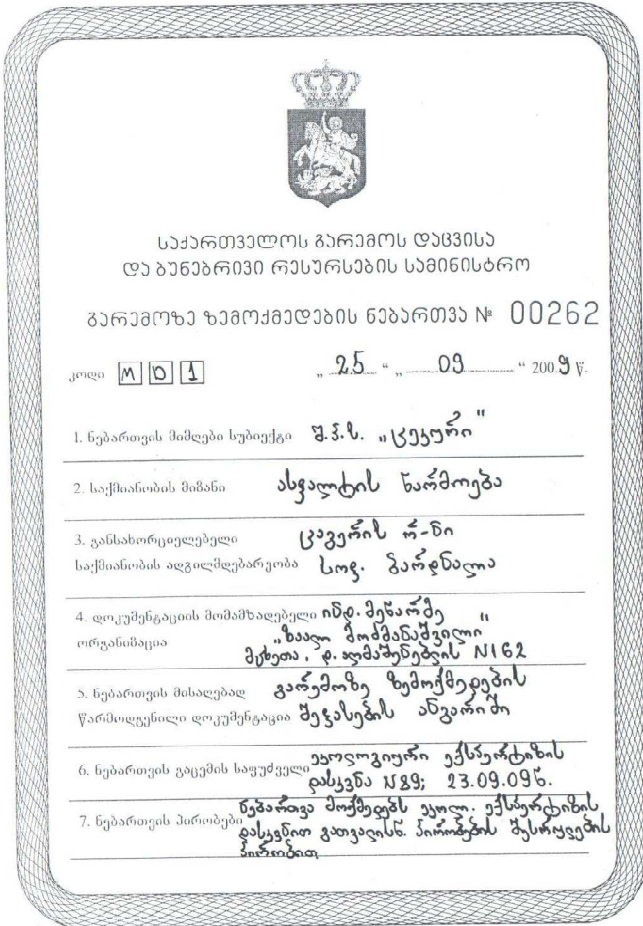 საქართველოს გარემოს დაცვისა
და ბუნებრივი რესურსების სამინისტრო
გარემოზე ზემოქმედების ნებართვა № 00262
კოდი M D 1 „ 25 “ „ 09 “ 2009 წ.
1. ნებართვის მიმღები სუბიექტი შ.პ.ს. „ცეკური"
2. საქმიანობის მიზანი ასფალტის წარმოება
3. განსახორციელებელი ცაგერის რ-ნი
საქმიანობის ადგილმდებარეობა სოფ. ბარდნალა
4. დოკუმენტაციის მომამზადებელი ინდ. მეწარმე
ორგანიზაცია „ზაალ მოძმანაშვილი"
მცხეთა. დ. აღმაშენებლის N162
5. ნებართვის მისაღებად გარემოზე ზემოქმედების
წარმოდგენილი დოკუმენტაცია შეფასების ანგარიში
6. ნებართვის გაცემის საფუძველი ეკოლოგიური ექსპერტიზის
დასკვნა N89; 23.09.09წ.
7. ნებართვის პირობები ნებართვა მოქმედებს ეკოლ. ექსპერტიზის
დასკვნით გათვალისწ. პირობების შესრულების
პირობით